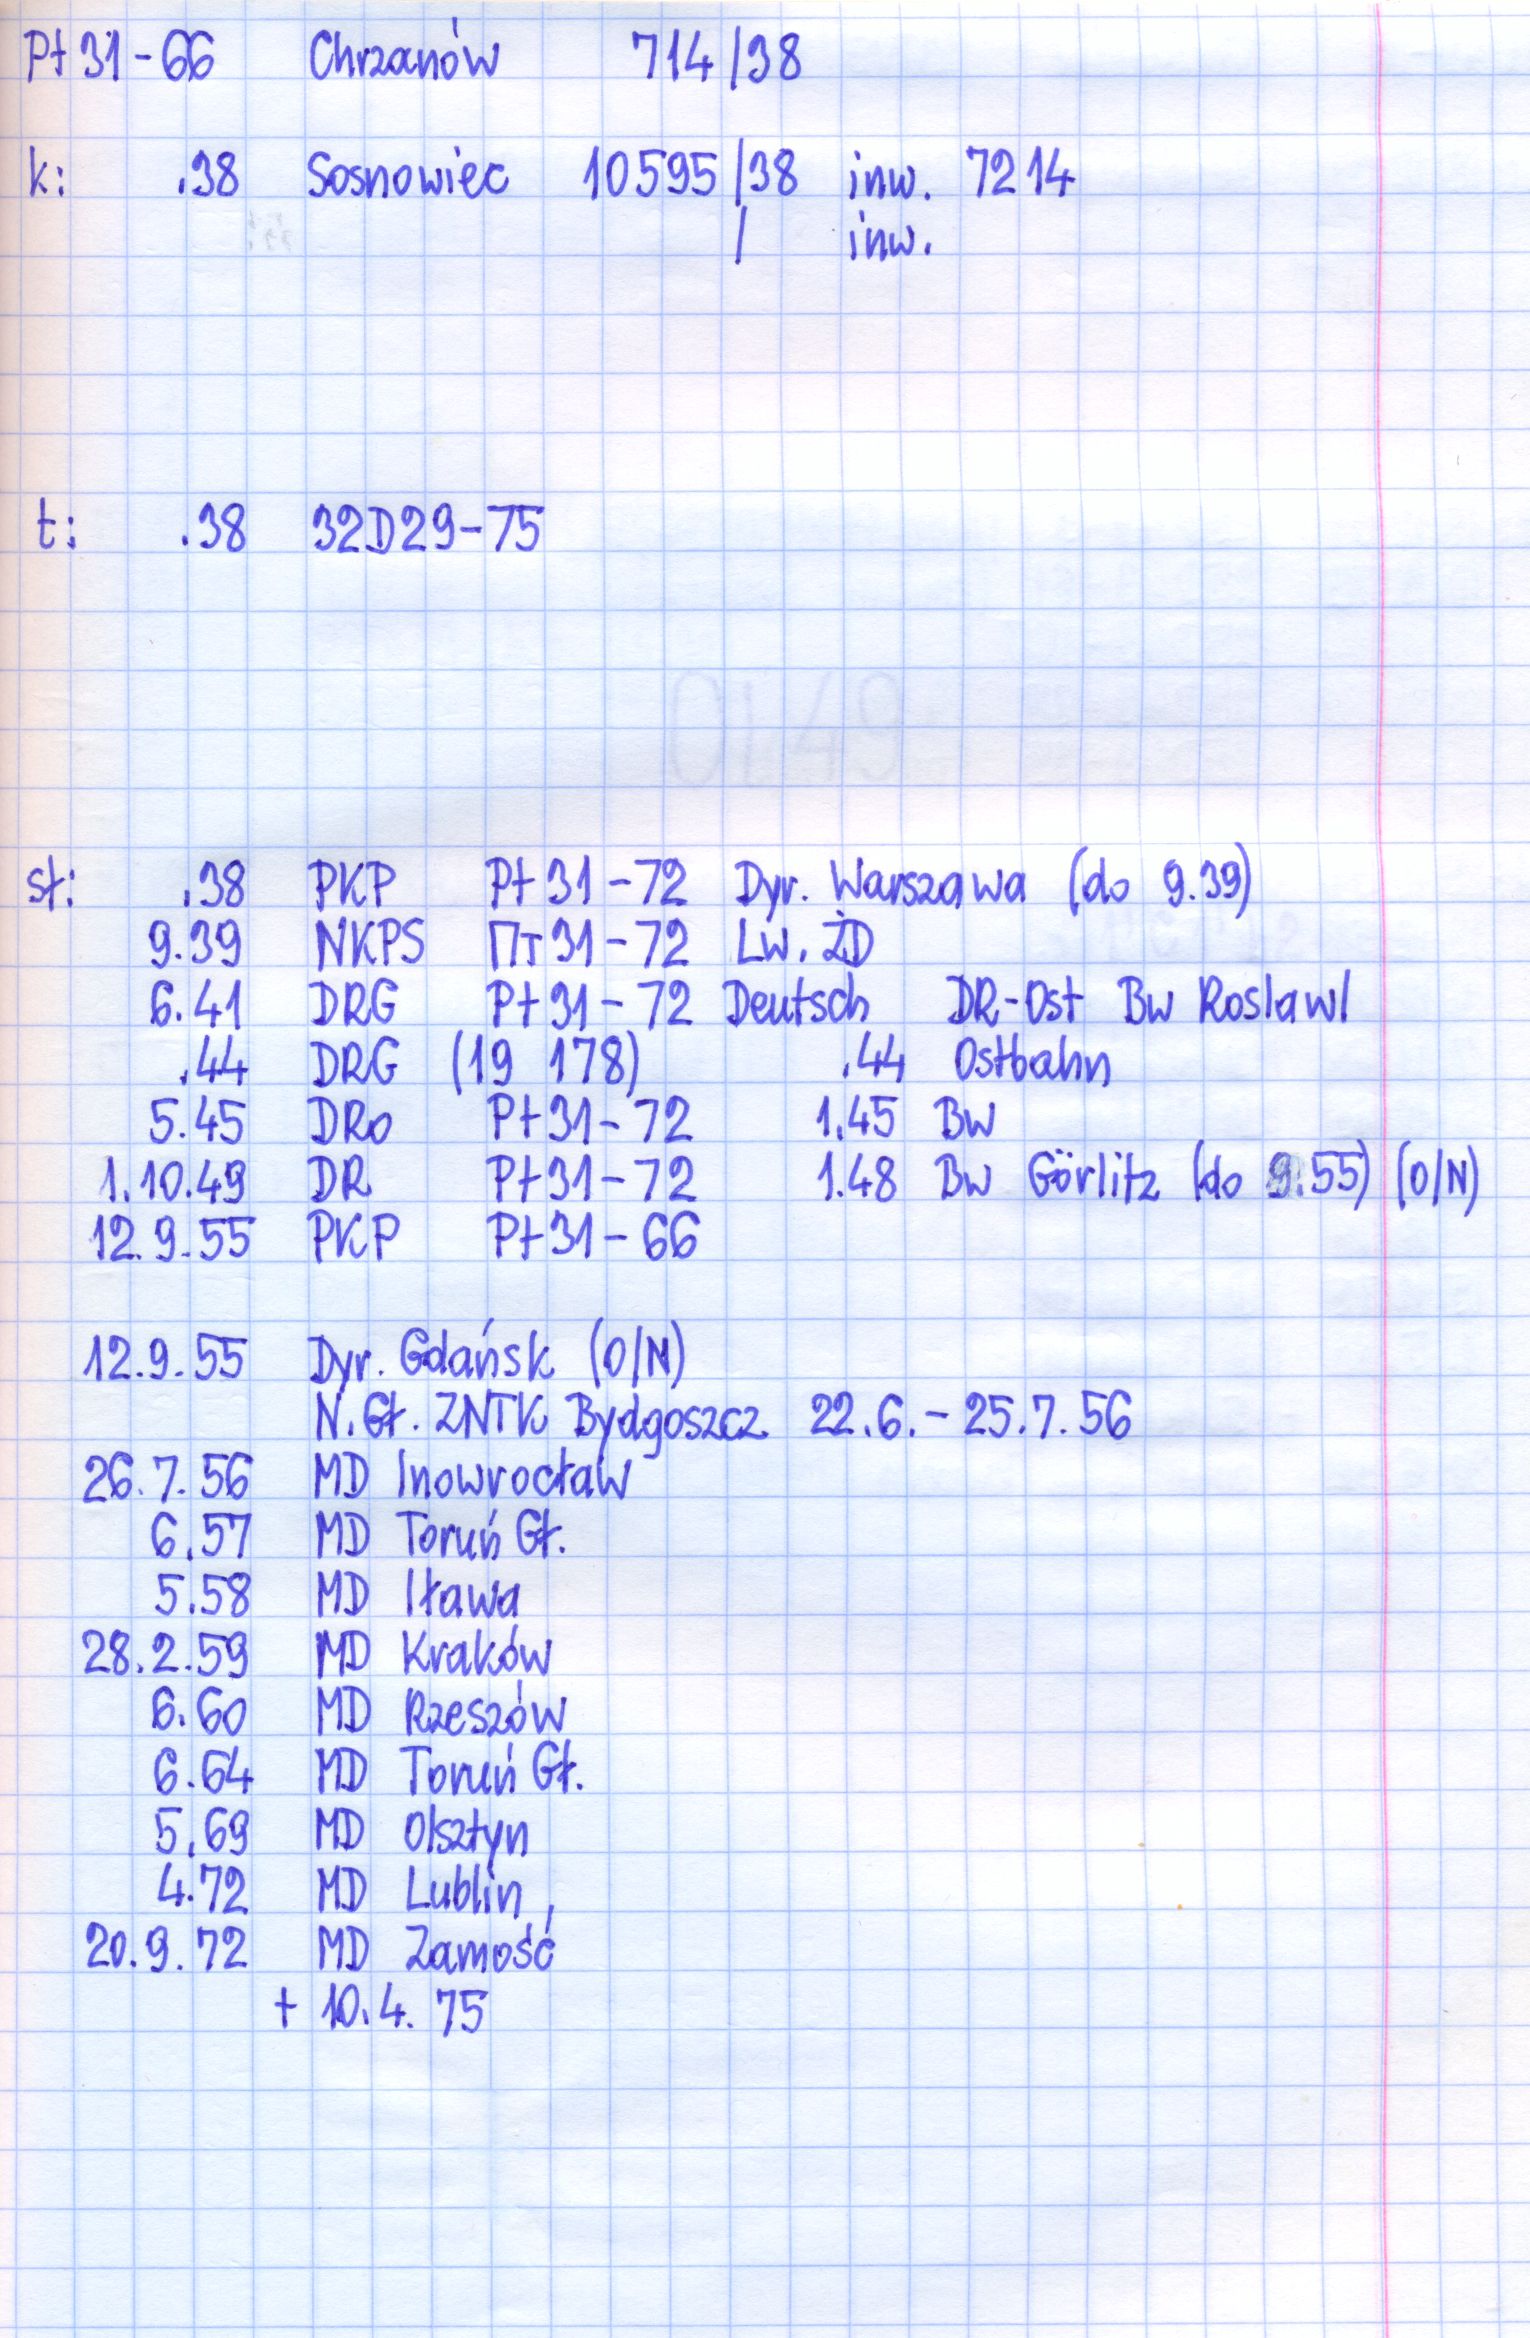 Pt 31-66 Chrzanów 714/38
k: .38 Sosnowiec 10595/38 inw. 7214
/ inw.
t: .38 32D29-75
OL49
sł: .38 PKP Pt 31-72 Dyr. Warszawa (do 9.39)
9.39 NKPS Пт 31-72 Lw. ŻD
6.41 DRG Pt 31-72 Deutsch DR-Ost Bw Roslawl
.44 DRG (19 178) .44 Ostbahn
5.45 DRo Pt 31-72 1.45 Bw
1.10.49 DR Pt 31-72 1.48 Bw Görlitz (do 9.55) (O/N)
12.9.55 PKP Pt 31-66
12.9.55 Dyr. Gdańsk (O/N)
N.Gł. ZNTK Bydgoszcz 22.6.-25.7.56
26.7.56 MD Inowrocław
6.57 MD Toruń Gł.
5.58 MD Iława
28.2.59 MD Kraków
6.60 MD Rzeszów
6.64 MD Toruń Gł.
5.69 MD Olsztyn
4.72 MD Lublin
20.9.72 MD Zamość
+ 10.4.75